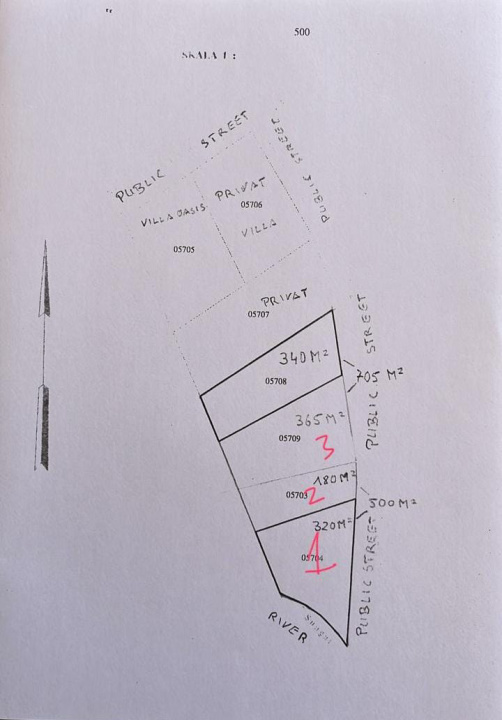 500
SKALA 1 :
PUBLIC STREET
PUBLIC STREET
VILLA OASIS
05705
PRIVAT
05706
VILLA
PRIVAT
05707
PUBLIC STREET
340 M²
05708
705 M²
365 M²
05709
3
180 M²
05703
2
500 M²
320 M²
05704
1
PUBLIC STREET
RIVER
Sungai